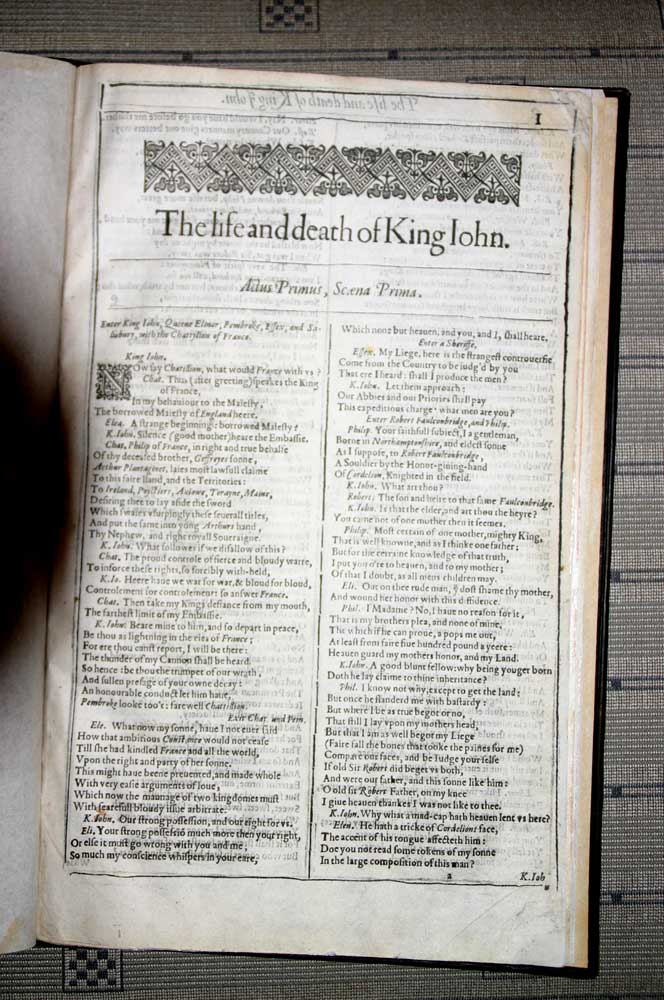 1
The life and death of King Iohn.
Actus Primus, Scæna Prima.
Enter King Iohn, Queene Elinor, Pembroke, Essex, and Sa-
lisbury, with the Chattylion of France.
King Iohn.
NOw say Chatillion, what would France with vs?
Chat. Thus (after greeting) speakes the King
of France,
In my behauiour to the Maiesty,
The borrowed Maiesty of England heere.
Elea. A strange beginning: borrowed Maiesty?
K.Iohn. Silence (good mother) heare the Embassie.
Chat. Philip of France, in right and true behalfe
Of thy deceased brother, Geffreyes sonne,
Arthur Plantaginet, laies most lawfull claime
To this faire Iland, and the Territories:
To Ireland, Poyctiers, Aniowe, Torayne, Maine,
Desiring thee to lay aside the sword
Which swaies vsurpingly these seuerall titles,
And put the same into yong Arthurs hand,
Thy Nephew, and right royall Soueraigne.
K.Iohn. What followes if we disallow of this?
Chat. The proud controle of fierce and bloudy warre,
To inforce these rights, so forcibly with-held,
K.Io. Heere haue we war for war, & bloud for bloud,
Controlement for controlement: so answer France.
Chat. Then take my Kings defiance from my mouth,
The farthest limit of my Embassie.
K.Iohn. Beare mine to him, and so depart in peace,
Be thou as lightning in the eies of France;
For ere thou canst report, I will be there:
The thunder of my Cannon shall be heard.
So hence: be thou the trumpet of our wrath,
And sullen presage of your owne decay:
An honourable conduct let him haue,
Pembroke looke too't: farewell Chattillion.
Exit Chat. and Pem.
Ele. What now my sonne, haue I not euer said
How that ambitious Constance would not cease
Till she had kindled France and all the world,
Vpon the right and party of her sonne.
This might haue beene preuented, and made whole
With very easie arguments of loue,
Which now the mannage of two kingdomes must
With fearefull bloudy issue arbitrate.
K.Iohn. Our strong possession, and our right for vs.
Eli. Your strong possessiõ much more then your right,
Or else it must go wrong with you and me,
So much my conscience whispers in your eare,
Which none but heauen, and you, and I, shall heare.
Enter a Sheriffe.
Essex. My Liege, here is the strangest controuersie
Come from the Country to be iudg'd by you
That ere I heard: shall I produce the men?
K.Iohn. Let them approach:
Our Abbies and our Priories shall pay
This expeditious charge: what men are you?
Enter Robert Faulconbridge, and Philip.
Philip. Your faithfull subiect, I a gentleman,
Borne in Northamptonshire, and eldest sonne
As I suppose, to Robert Faulconbridge,
A Souldier by the Honor-giuing-hand
Of Cordelion, Knighted in the field.
K.Iohn. What art thou?
Robert. The son and heire to that same Faulconbridge.
K.Iohn. Is that the elder, and art thou the heyre?
You came not of one mother then it seemes.
Philip. Most certain of one mother, mighty King,
That is well knowne, and as I thinke one father:
But for the certaine knowledge of that truth,
I put you o're to heauen, and to my mother;
Of that I doubt, as all mens children may.
Eli. Out on thee rude man, ỹ dost shame thy mother,
And wound her honor with this diffidence.
Phil. I Madame? No, I haue no reason for it,
That is my brothers plea, and none of mine,
The which if he can proue, a pops me out,
At least from faire fiue hundred pound a yeere:
Heauen guard my mothers honor, and my Land.
K.Iohn. A good blunt fellow: why being yonger born
Doth he lay claime to thine inheritance?
Phil. I know not why, except to get the land:
But once he slanderd me with bastardy:
But where I be as true begot or no,
That still I lay vpon my mothers head,
But that I am as well begot my Liege
(Faire fall the bones that tooke the paines for me)
Compare our faces, and be Iudge your selfe
If old Sir Robert did beget vs both,
And were our father, and this sonne like him:
O old sir Robert Father, on my knee
I giue heauen thankes I was not like to thee.
K.Iohn. Why what a mad-cap hath heauen lent vs here?
Elen. He hath a tricke of Cordelions face,
The accent of his tongue affecteth him:
Doe you not read some tokens of my sonne
In the large composition of this man?
a
K.Ioh